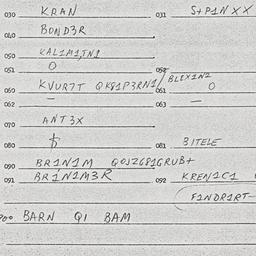 030 KRAN 031 S+P1NXX
040 BOND3R
050 KAL1M1,TN1
051 0 052 BLEX1N2
060 KVUR7T QK81P3RN1/ 061 0
062 — 063 —
070 ANT3X
080 $ 081 31TELE
090 BR1N1M QOJZ681GRUB+
091 BR1N1M3R 092 KREN1C1
F1NDR1RT-
900 BARN Q1 BAM